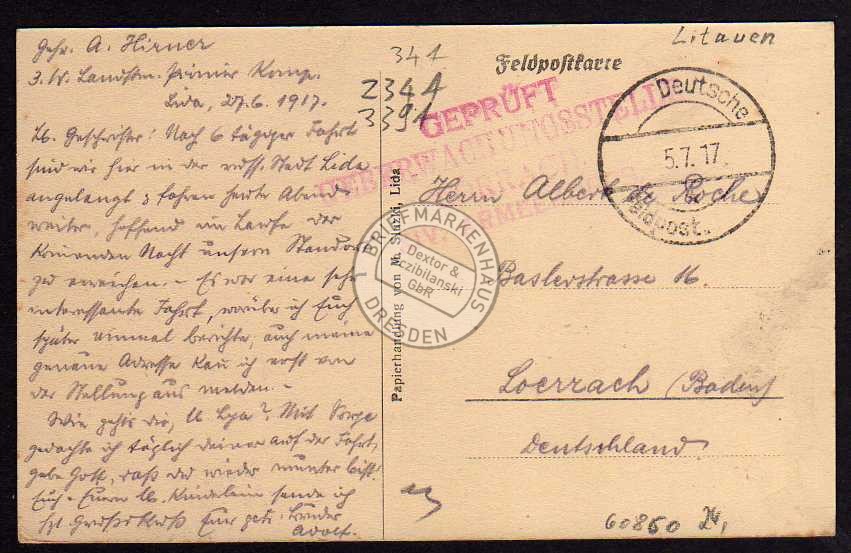 Gefr. A. Hirner
3. W. Landstm. Pionier Komp.
Lida, 27.6.1917.
Lb. Geschwister! Nach 6 tägiger Fahrt
sind wir hier in der russ. Stadt Lida
angelangt & fahren heute Abend
weiter, hoffend im Laufe der
kommenden Nacht unsern Standort
zu erreichen. – Es war eine sehr
interessante Fahrt, worüber ich Euch
später einmal berichte, auch meine
genaue Adresse kann ich erst von
der Stellung aus melden. –
Wie gehts dir, lb. Lya? Mit Sorge
gedachte ich täglich deiner auf der Fahrt,
gebe Gott, daß du wieder munter bist!
Euch & Euern lb. Kindelein sende ich
hzl Gruß & Kuß Euer getr. Bruder
Adolf.
341
2341
3391
Litauen
Feldpostkarte
GEPRÜFT
UEBERWACHUNGSSTELLE
LÖRRACH
Deutsche
5.7.17.
Feldpost.
Herrn Albert
Roche
Baslerstrasse 16.
Loerrach (Baden)
Deutschland.
Papierhandlung von M. Slazki, Lida
BRIEFMARKENHAUS
Dextor &
Przibilanski
GbR
DRESDEN
60860